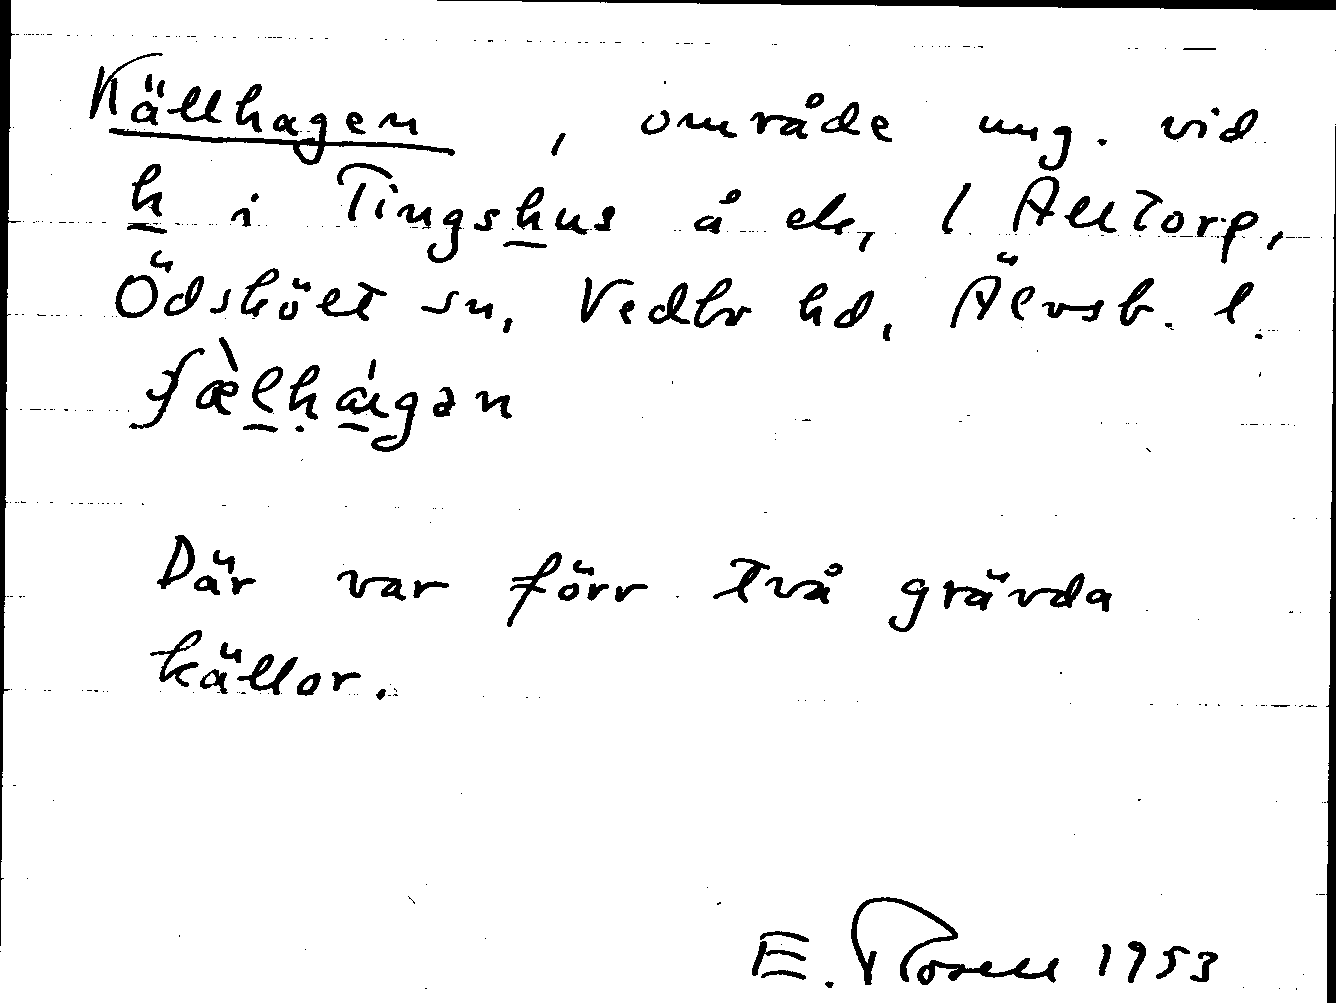 Källhagen, område ung. vid
h i Tingshus å ek, 1 Alltorp,
Ödsköelt sn, Vedbo hd, Älvsb. l.
Där var förr två grävda
källor.
E. Rosell 1953